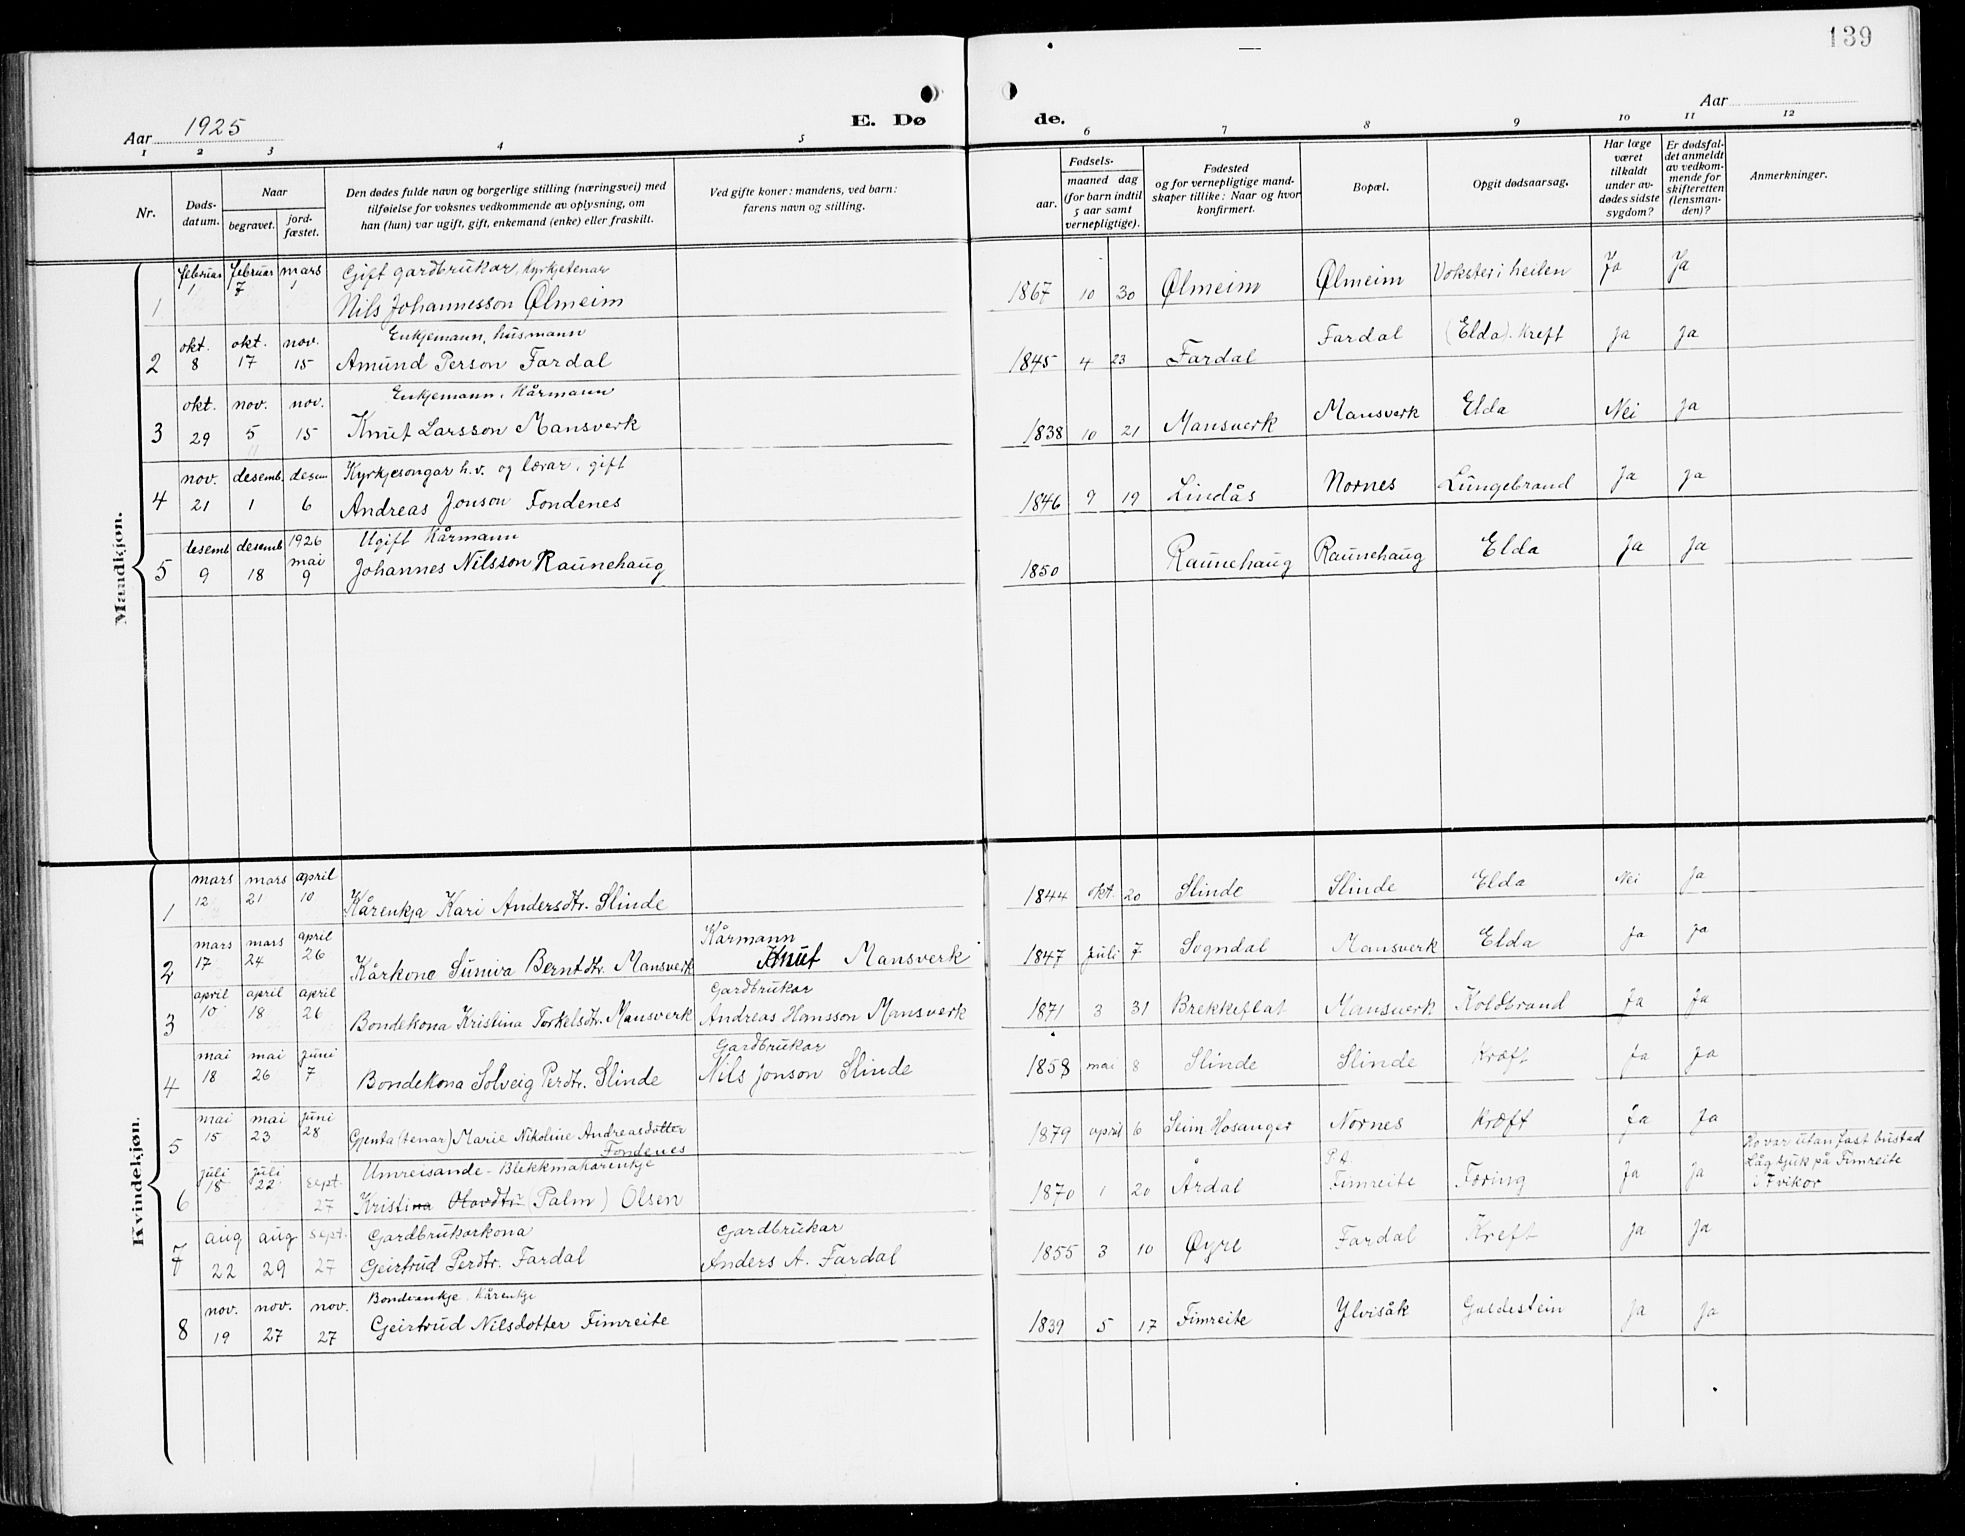 139
Aar 1925
E. Dø de.
Aar
1 2 3 4 5 6 7 8 9 10 11 12
Nr.
Døds-datum.
Naar
begravet.
jord-fæstet.
Den dødes fulde navn og borgerlige stilling (næringsvei) med
tilføielse for voksnes vedkommende av oplysning, om
han (hun) var ugift, gift, enkemand (enke) eller fraskilt.
Ved gifte koner: mandens, ved barn:
farens navn og stilling.
Fødsels-
aar.
maaned dag
(for barn indtil
5 aar samt
vernepligtige).
Fødested
og for vernepligtige mand-
skaper tillike: Naar og hvor
konfirmert.
Bopæl.
Opgit dødsaarsag.
Har læge
været
tilkaldt
under av-
dødes sidste
sygdom?
Er dødsfal-
det anmeldt
av vedkom-
mende for
skifteretten
(lensman-
den)?
Anmerkninger.
Mandkjøn.
februar februar mars Gift gardbrukar, Kyrkjetenar
1 1 7 1 Nils Johannesson Ølmeim 1867 10 30 Ølmeim Ølmeim Vokster i heilen Ja Ja
okt. okt. nov. Enkjemann, husmann
2 8 17 15 Amund Person Fardal 1845 4 23 Fardal Fardal (Elda). Kreft Ja Ja
okt. nov. nov. Enkjemann, Kårmann
3 29 5 15 Knut Larsson Mansverk 1838 10 21 Mansverk Mansverk Elda Nei Ja
nov. desemb. desem Kyrkjesongar h.v. og lærar, gift
4 21 1 6 Andreas Jonson Fondenes 1846 9 19 Lindås Nornes Lungebrand Ja Ja
desemb desemb 1926 mai Ugift Kårmann
5 9 18 9 Johannes Nilsson Raunehaug 1850 Raunehaug Raunehaug Elda Ja Ja
Kvindekjøn.
mars mars april
1 12 21 10 Kårenkja Kari Andersdtr. Slinde 1844 okt. 20 Slinde Slinde Elda Nei Ja
mars mars april Kårmann
2 17 24 26 Kårkone Suniva Berntdtr. Mansverk Knut Mansverk 1847 juli 7 Sogndal Mansverk Elda Ja Ja
april april april Gardbrukar
3 10 18 26 Bondekona Kristina Torkelsdtr. Mansverk Andreas Hansson Mansverk 1871 3 31 Brekkeflat Mansverk Koldbrand Ja Ja
mai mai juni Gardbrukar
4 18 26 7 Bondekona Solveig Perdtr. Slinde Nils Jonson Slinde 1858 mai 8 Slinde Slinde Kræft Ja Ja
mai mai juni
5 15 23 28 Gjenta (tenar) Marie Nikoline Andreasdotter 1879 april 6 Seim Hosanger Nornes Kræft Ja Ja
Fondenes
juli juli sept. Umreisande - Blekkmakarenkje
6 18 22 27 Kristina Olavdtr. (Palm) Olsen 1870 1 20 Årdal P.t. Fimreite Tæring Ja Ja
Ho var utan fast bustad
Låg sjuk på Fimreite
i 7 vikor
aug aug sept. Gardbrukarkona Gardbrukar
7 22 29 27 Geirtrud Perdtr. Fardal Anders A. Fardal 1855 3 10 Øyre Fardal Kreft Ja Ja
nov. nov. nov. Bondeenkje Kårenkje
8 19 27 27 Geirtrud Nilsdotter Fimreite 1839 5 17 Fimreite Ylvisåk Galdestein Ja Ja